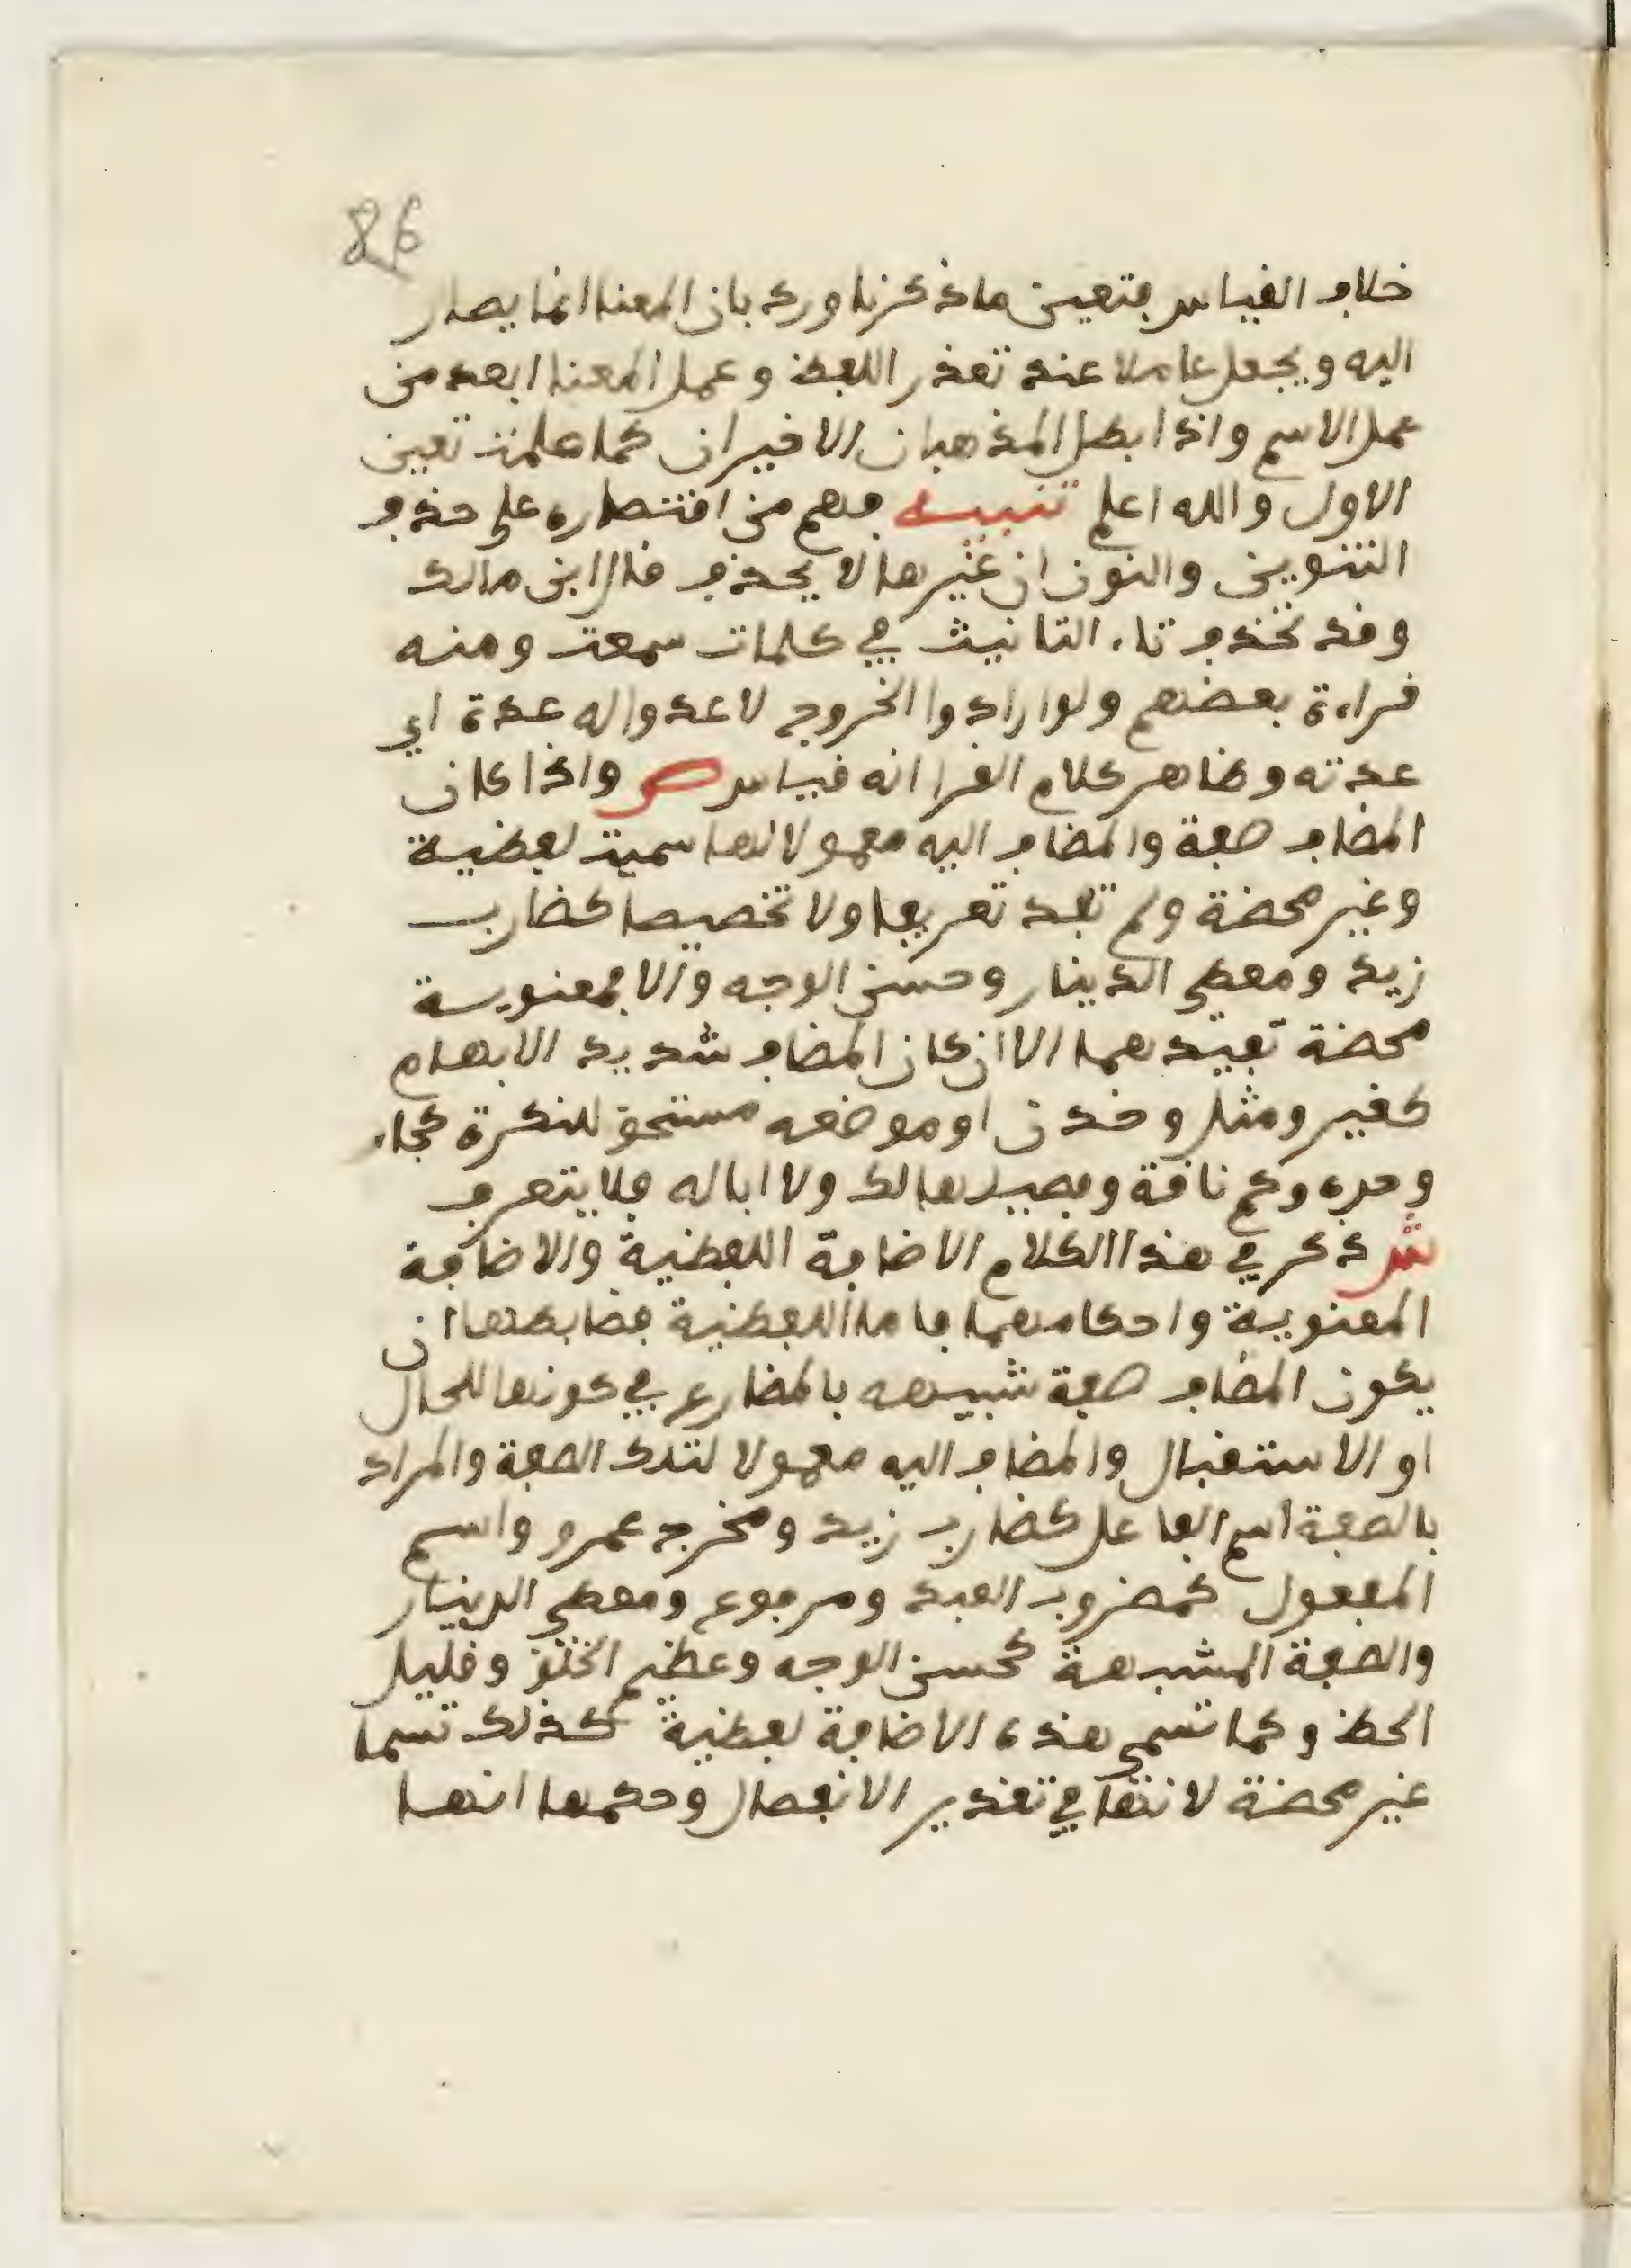 86
خلاف القياس فتعين ما ذكرنا ورد بان المعنا انما يصار
اليه ويجعل عاملا عند تعذر اللفظ وعمل المعنا ابعد من
عمل الاسم واذا بطل المذهبان الاخيران كما علمت تعين
الاول والله اعلم تنبيه فهم من اقتصاره على حذف
التنوين والنون ان غيرها لا يحذف قال ابن مالك
وقد تحذف تاء التانيث في كلمات سمعت ومنه
قراءة بعضهم ولو ارادوا الخروج لاعدوا له عدة اي
عدته وظاهر كلام الفرا انه قياس ص واذا كان
المضاف صفة والمضاف اليه معمولا لها سميت لفظية
وغير محضة ولم تفد تعريفا ولا تخصيصا كضارب
زيد ومعطي الدينار وحسن الوجه والا فمعنوية
محضة تفيدهما الا ان كان المضاف شديد الابهام
كغير ومثل وخدن او موضعه مستحق للنكرة كجاء
وحده وكم ناقة وفصيلها لك ولا اباله فلا يتعرف
ش ذكر في هذا الكلام الاضافة اللفظية والاضافة
المعنوية واحكامهما فاما اللفظية فضابطها ان
يكون المضاف صفة شبيهه بالمضارع في كونها للحال
او الاستقبال والمضاف اليه معمولا لتلك الصفة والمراد
بالصفة اسم الفاعل كضارب زيد ومخرج عمرو واسم
المفعول كمضروب العبد ومرفوع ومعطي الدينار
والصفة المشبهة كحسن الوجه وعظيم الخلق وقليل
الحظ وكما تسمى هذه الاضافة لفظية كذلك تسما
غير محضة لانها في تقدير الانفصال وحكمها انها